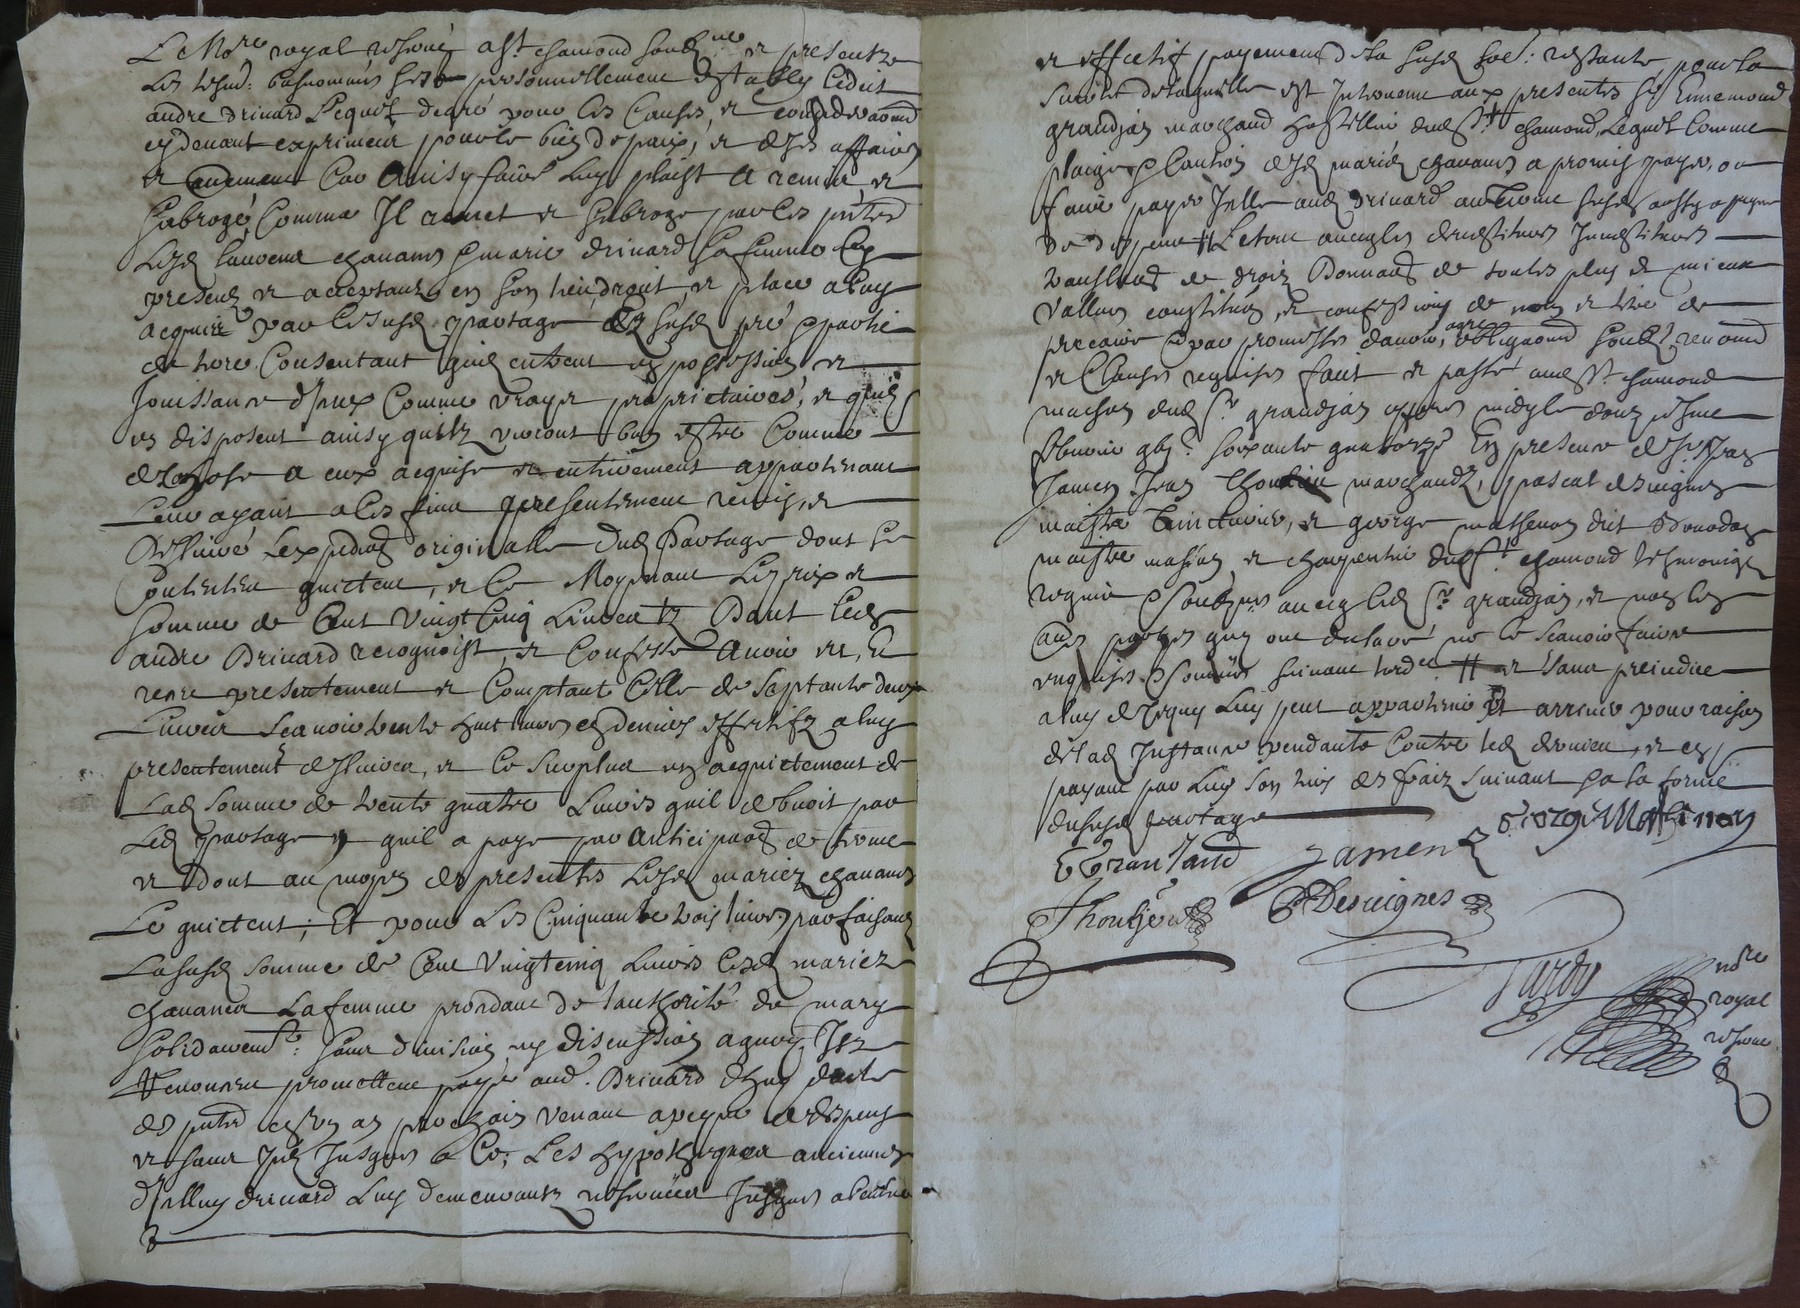 Le No.re royal reservé a St chamond soub.né et presentz
Les tesm: basnommés personnellement estably ledict
andre drivard Lequel de gré pour les Causes, et
cy devant exprimeés pour le bien de paix, et de ses affaires
et Car Ainsy faire Luy plaist A remis et
subrogé, Comme Il remet et subroge par les pñtes
Lesd Lauvene chananes & marie drivard sa femme
presentz et acceptantz en son lieu droit, et place a luy
acquise par le susd partage susd pré & partie
de terre Consentant quilz entrent en possession et
Jouissance d'Iceux Comme vrays proprietaires, et quilz
en disposent ainsy quilz verront bon estre Comme
de chose a eux acquise et entierement appartenant
Leur ayant a ces fins presentement remis, et
deslivré Lexpedion originalle dud Partage dont se
Contentent quictent, et Ce Moyenant Le prix et
somme de Cent Vingt Cinq Livres tz Dont Led
andre Drivard recognoist, et Confesse Avoir eu, et
receu presentement et Comptant Celle de Septante deux
Livres Scavoir trente huict livres en deniers effectifz a luy
presentement deslivrea, et le surplus en acquictement de
Lad somme de trente quatre Livres quil debvoit par
Led partage & quil a payé par Anticipaon de terme
et dont au moyen des presentes Lesd mariez chananes
Le quictent; Et pour Les Cinquante trois livres parfaisant
La susd somme de Cent Vingt cinq Livres Lesd mariez
chananes La femme procedant de l'authorité de mary
solidairemt: sans division ny discussion a quoy Ilz
Renoncent promettent payer aud. Drivard
des pntes en un an prochain venant a peyne de despens
et sans Jusques a Ce, Les hypotheques anciennes
d'Icelluy drivard Luy demeurants reservées Jusques a l'entier
et effectif payement de la susd so.e: restante, pour la
seureté de laquelle est Intervenu aux presentes sr Ennemond
grandjan marchand hostellier dud St chamond, Lequel Comme
plaige & Caution desd mariez chananes a promis payer, ou
faire payer Icelle aud drivard au terme susd aussy a peyne
de despens # Le tout avec les devestitures Investitures
translaons de droiz Donnaon de toutes plus et mieux
vallues constitution, et confession de nom et tittre de
precaire & par promesses davoir agré obligaons soubz renons
et Clauses requises fait et passé aud St chamond
maison dud Sr grandjan apres midy le douziesme
febvrier gbjc soixante quatorze En presence de Sr Jean
Jamen Jean Thoulieu marchandz, pascal desvignes
maistre tainturier, et george mathenon dict
maistre masson et charpentier dud St chamond tesmoings
requis & soubznes avec led Sr grandjan, et non les
autres parties quy ont declaré ne le scavoir faire
enquises & sommées suivant lorde # et sans prejudice
a luy de ce quy Luy peut appartenir Et arriver pour raison
de lad Instance pendante Contre led et en
payant par Luy son tiers des fraiz suivant la forme
du susd partage
E Granjand
Jamen
George Mathenon
Thoulieu
P Desvignes
Tardy
no.re
royal
reservé